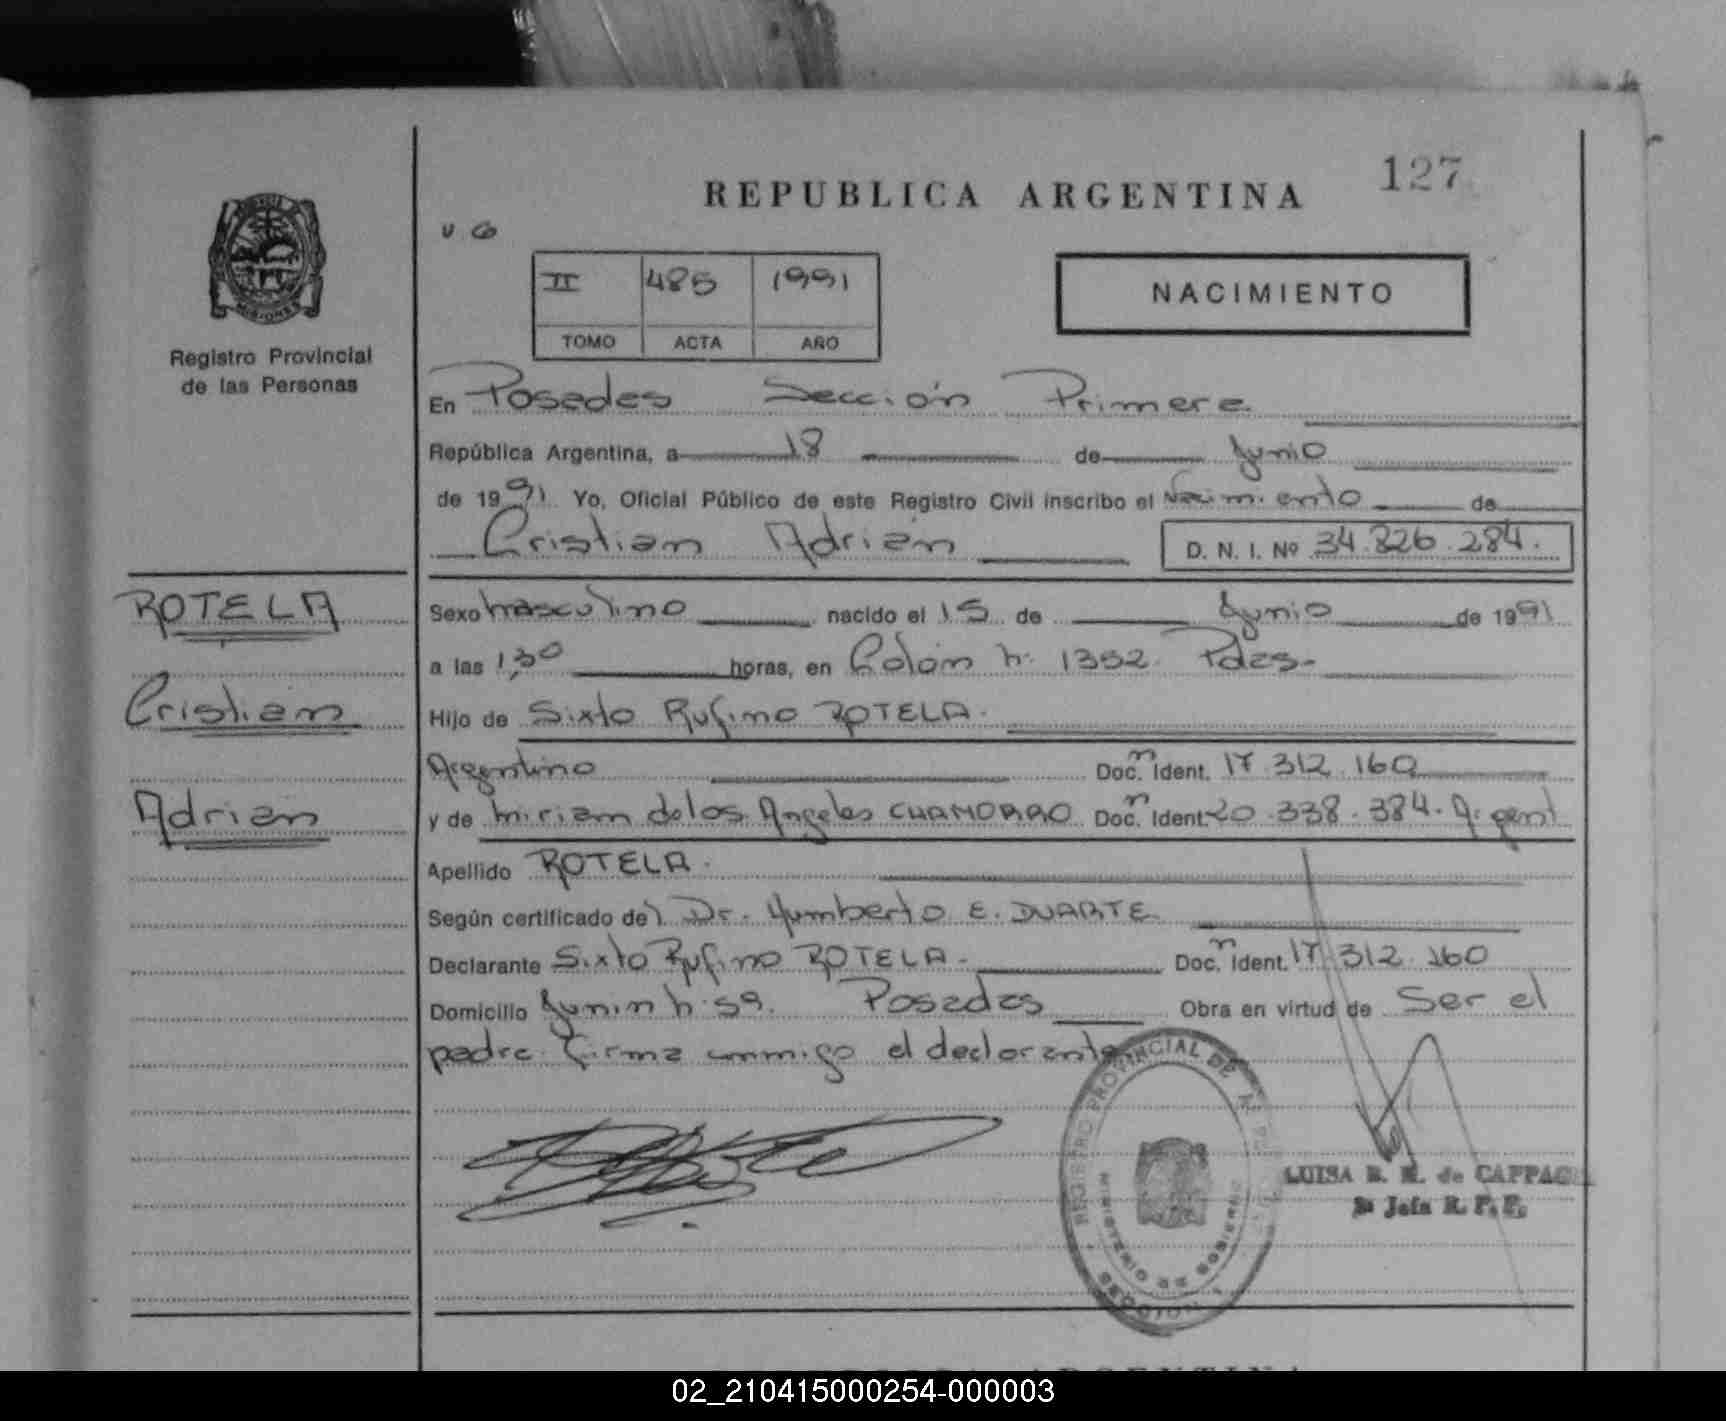 127
REPUBLICA ARGENTINA
MISIONES
Registro Provincial
de las Personas
II 485 1991
TOMO ACTA AÑO
NACIMIENTO
En Posadas Sección Primera
República Argentina, a 18 de Junio
de 1991 Yo, Oficial Público de este Registro Civil inscribo el Nacimiento de
Cristian Adrián D. N. I. Nº 34.826.284.
ROTELA
Cristian
Adrián
Sexo masculino nacido el 15 de Junio de 1991
a las 1,30 horas, en Colón n: 1352. Pdas.
Hijo de Sixto Rufino ROTELA.
Argentino Doc. Ident. 17.312.160
y de Miriam de los Angeles CHAMORRO Doc. Ident. 20.338.384. Argent
Apellido ROTELA.
Según certificado del Dr. Humberto E. DUARTE
Declarante Sixto Rufino ROTELA. Doc. Ident. 17.312.160
Domicilio Junin n: 59. Posadas Obra en virtud de Ser el
padre. Firma conmigo el declarante
REGISTRO PROVINCIAL DE
MINISTERIO DE GOBIERNO
SECCION
LUISA de
Jefa R. P. P.
02_210415000254-000003